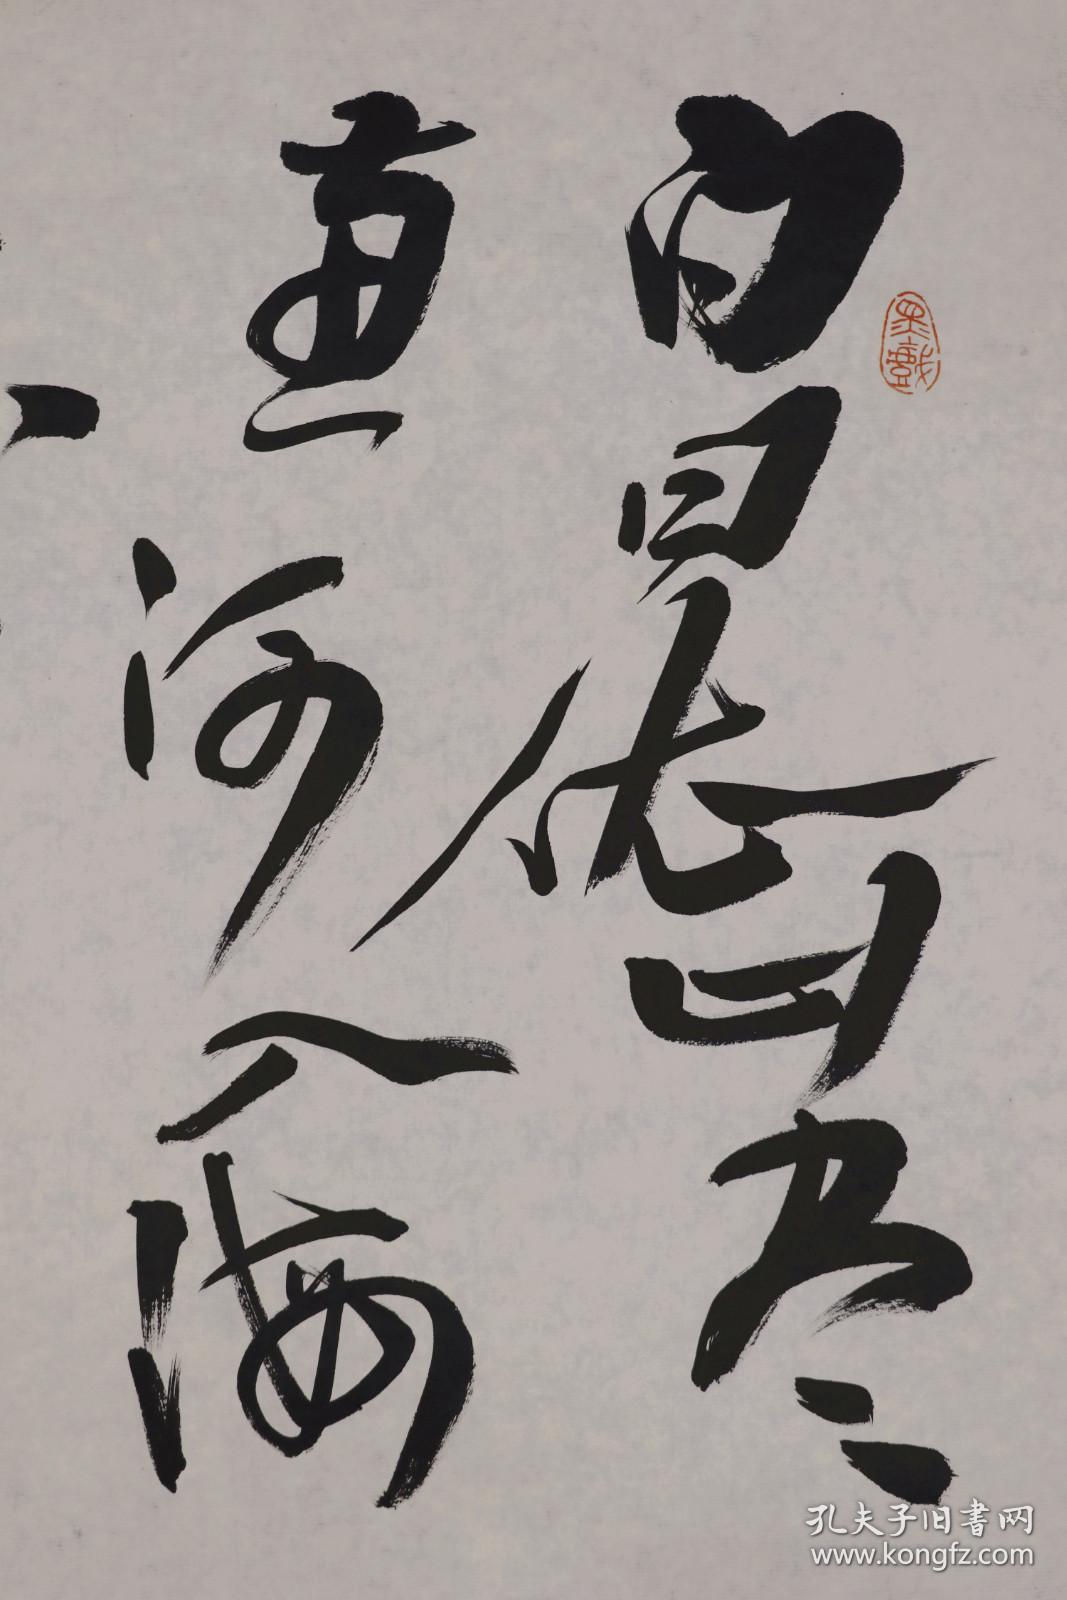 白日依山尽
黄河入海
墨戲
孔夫子旧書网
www.kongfz.com